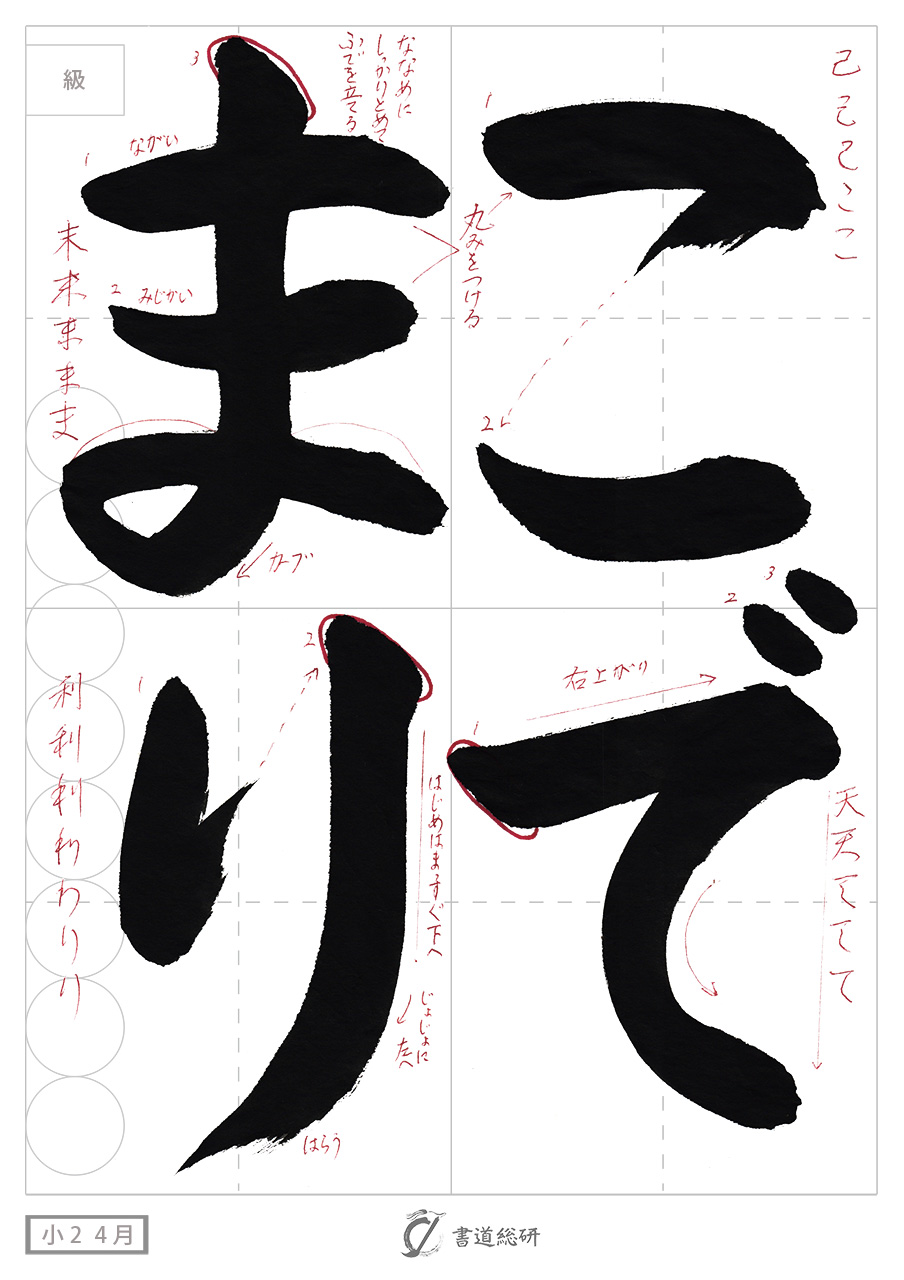 こで
まり
己己己ここ
1
丸みをつける
2
3
2
1
右上がり
天天ててて
ななめに
しっかりとめて
ふでを立てる
3
1 ながい
2 みじかい
末末ままま
カーブ
2
1
はじめはまっすぐ下へ
じょじょに
左へ
はらう
利利利利わりり
級
小2 4月
書道総研